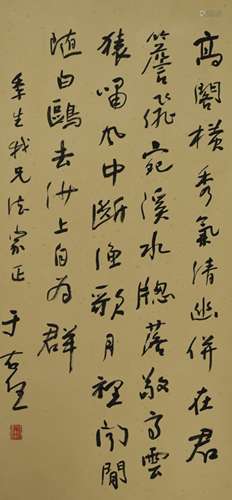 高閣橫秀氣清幽併在君
簷飛宛溪水牕落敬亭雲
猿嘯風中斷漁歌月裡聞閒
隨白鷗去沙上自為群
季生我兄法家正
于右任